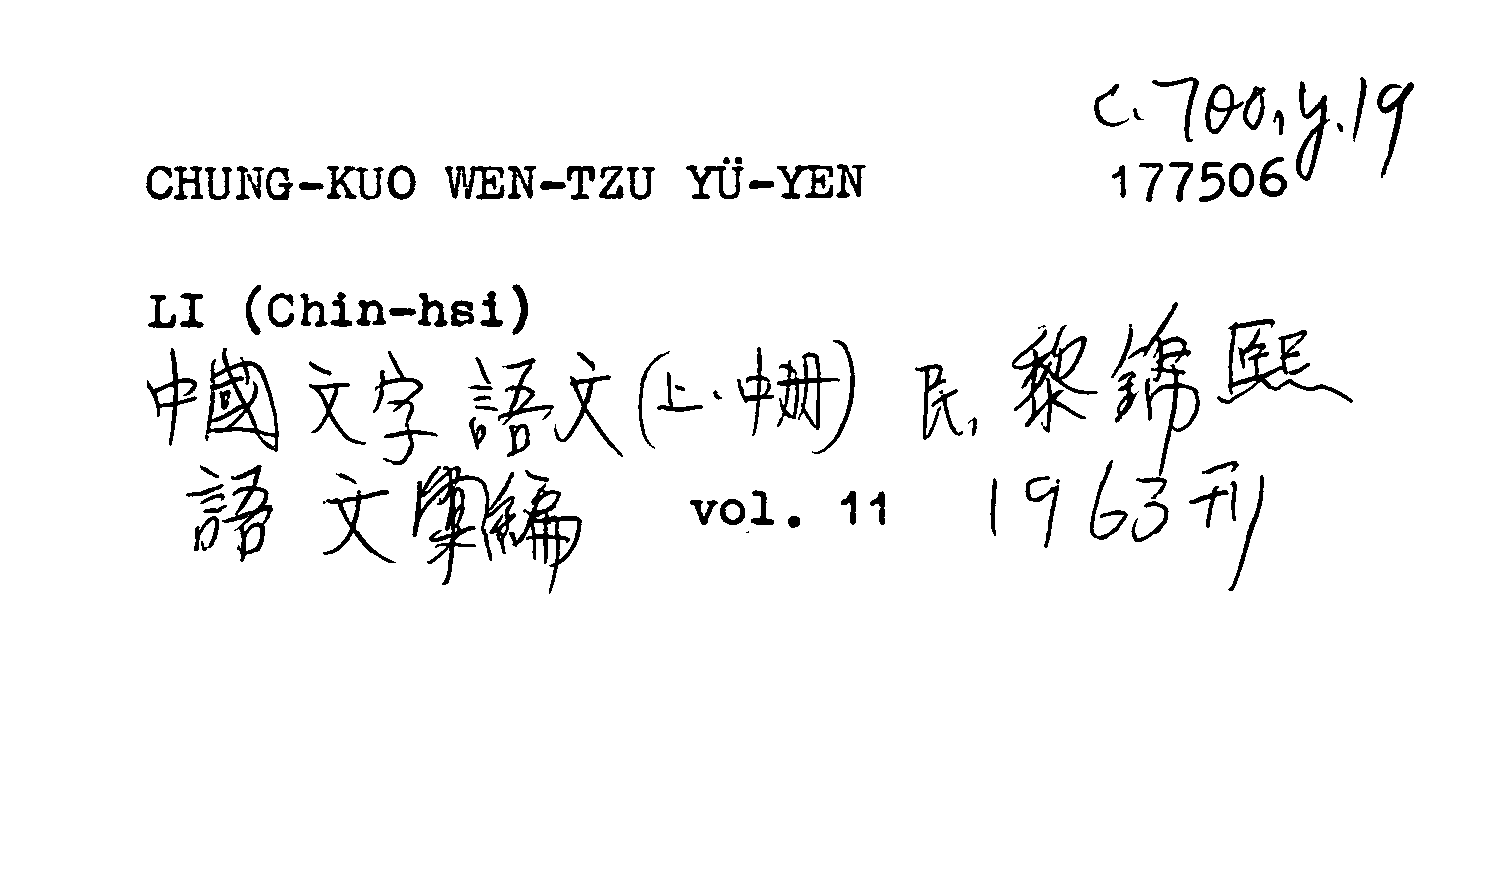 c.700,y.19
CHUNG-KUO WEN-TZU YÜ-YEN 177506
LI (Chin-hsi)
中國文字語文(上.中冊) 民,黎錦熙
語文彙編 vol. 11 1963刊